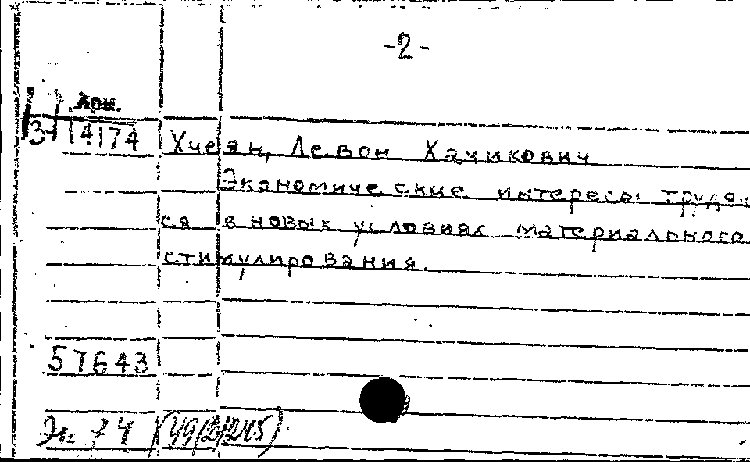 -2-
Арм.
3-
14174 Хчеян, Левон Хачикович
Экономические интересы трудя
ся в новых условиях материального
стимулирования.
57643
Эк. 74 (49/2/245)